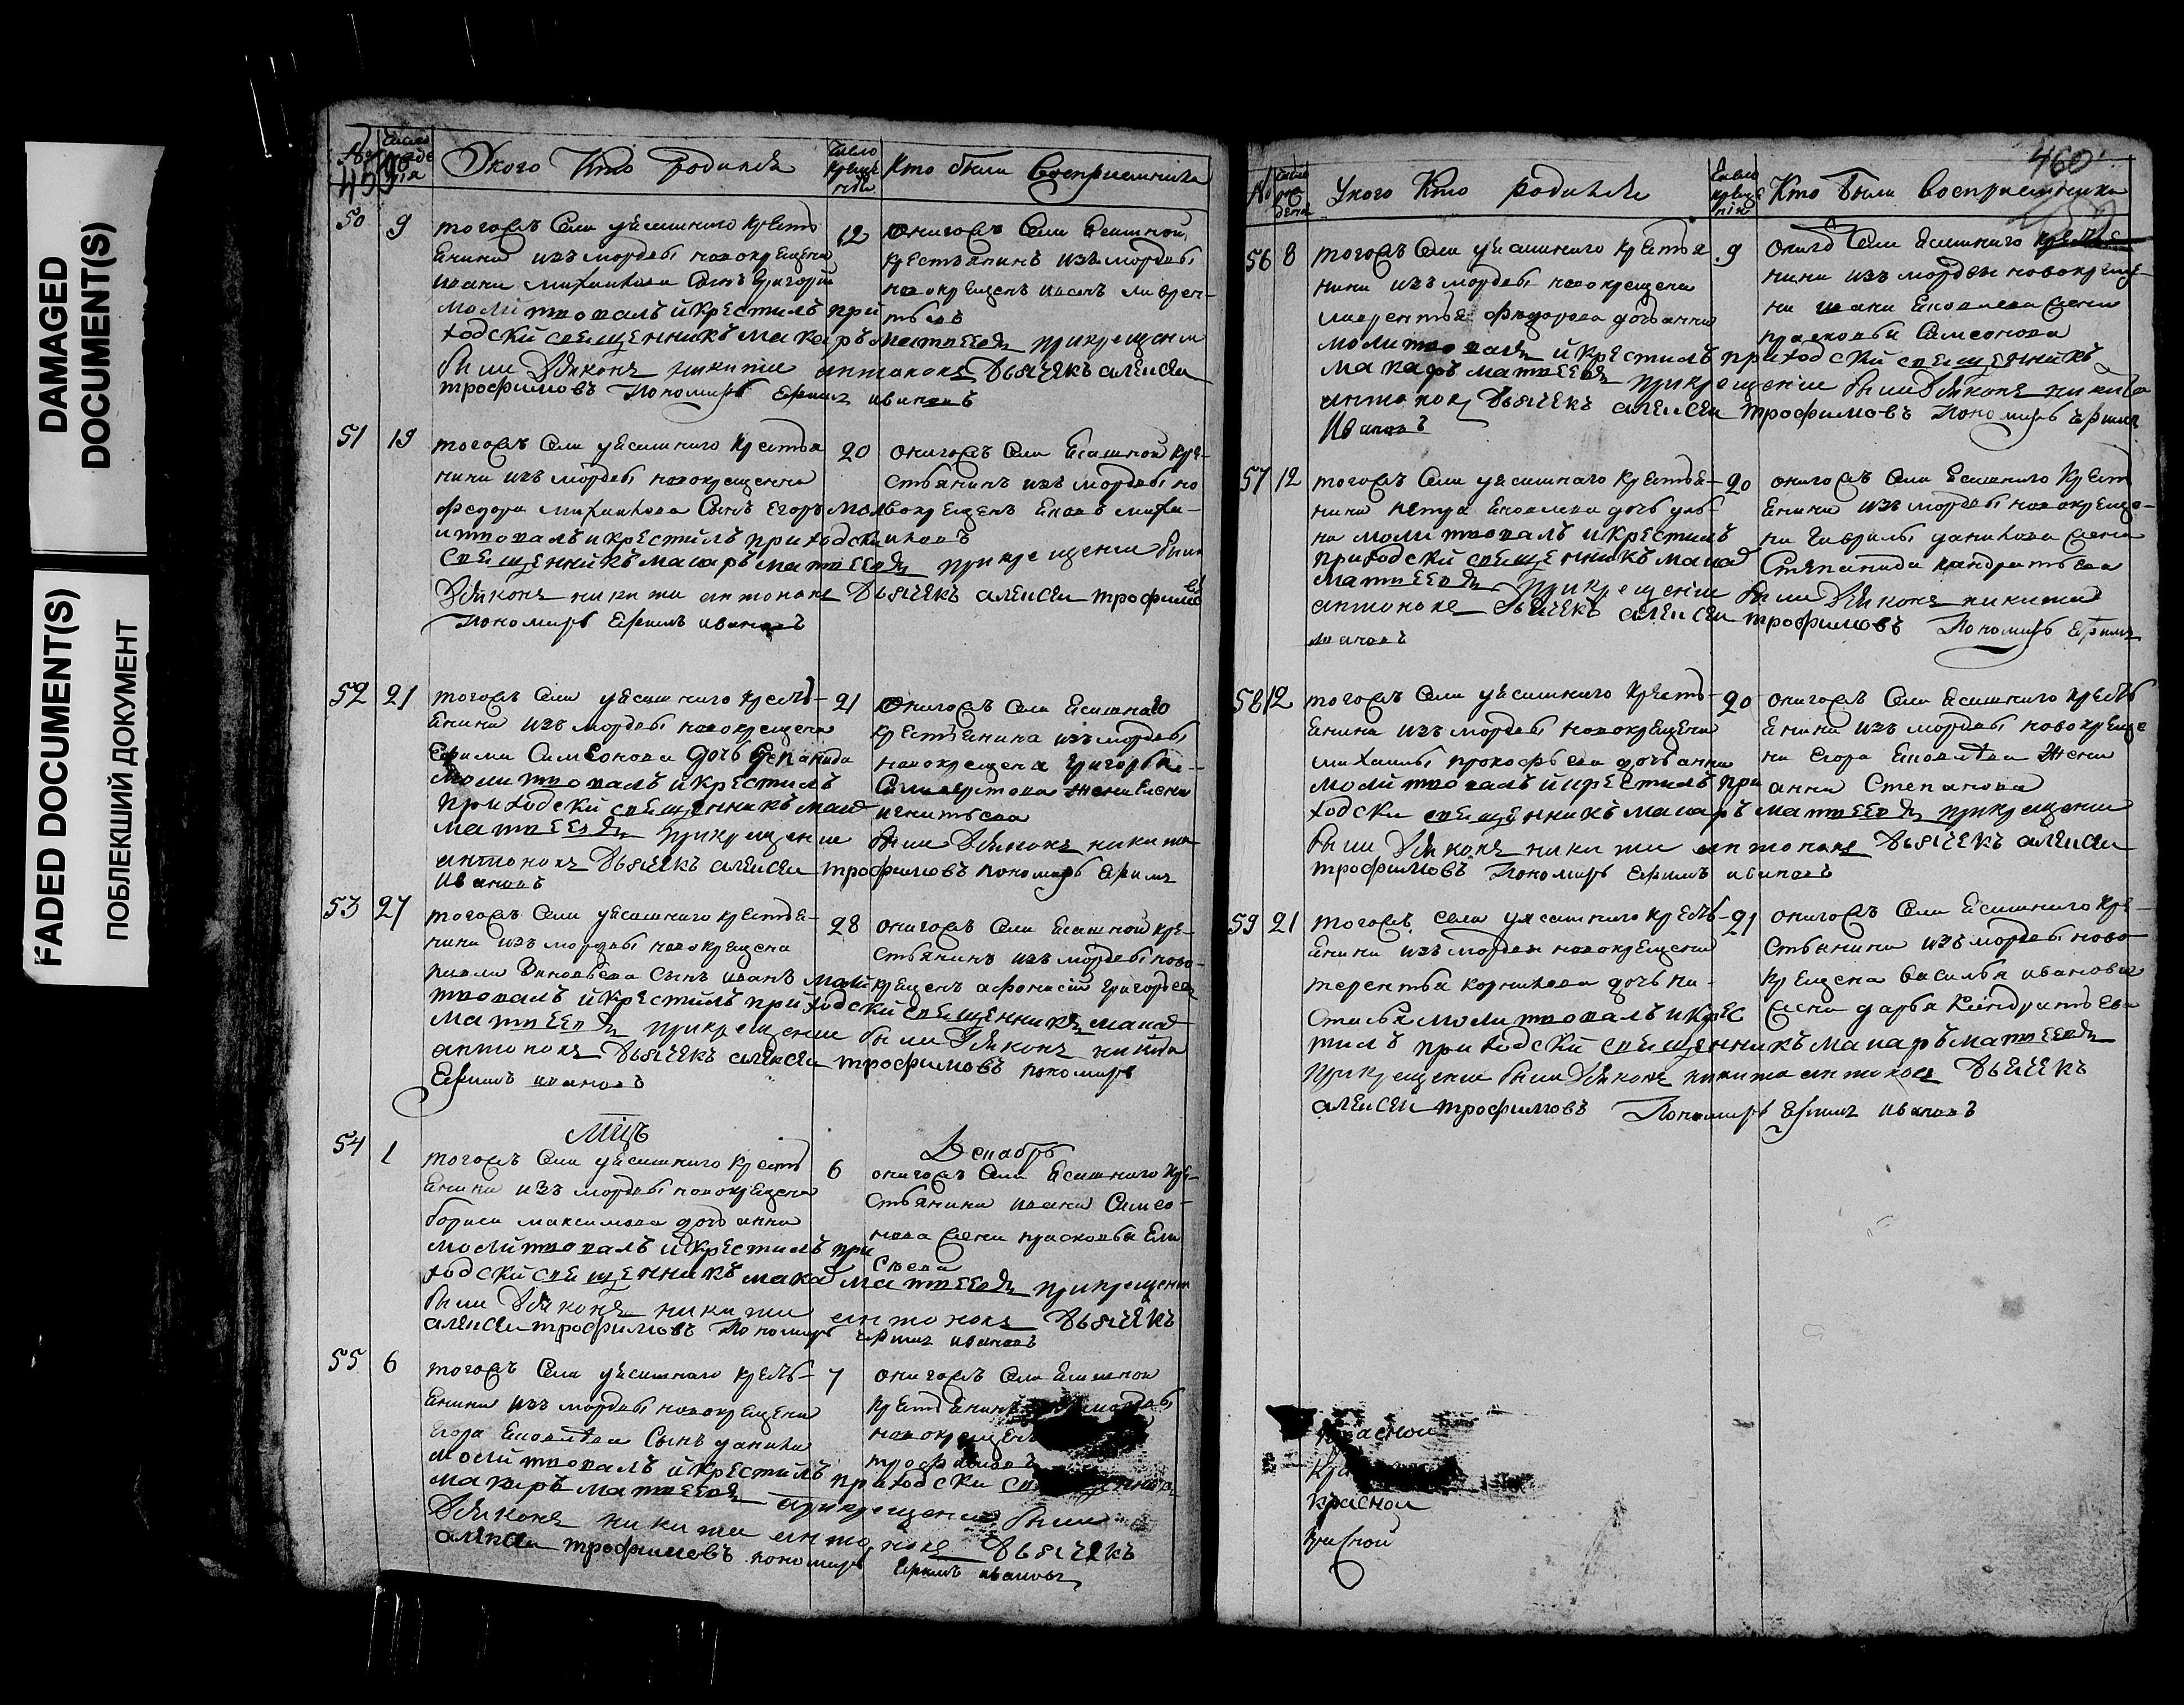 DAMAGED
DOCUMENT(S)
FADED DOCUMENT(S)
ПОБЛЕКШИЙ ДОКУМЕНТ
459
У кого Кто родился
Число крещения
Кто были восприемники
50 9
тогожъ села ясашного кресть
янина изъ мордвы новокрещена
ивана михаилова сынъ григорий
молитвовалъ и крестилъ при
ходский священникъ макаръ матвеевъ при крещени
были Дьяконъ никита антоновъ Дьячекъ алексеи
трофимовъ Пономарь Ефимъ ивановъ
12
оногожъ села ясашной
крестьянинъ изъ мордвы
новокрещенъ иванъ лаврен-
тьевъ
51 19
тогожъ села ясашного крестья
нина изъ мордвы новокрещена
федора михаилова сынъ Егоръ мол
итвовалъ и крестилъ приходски
священникъ макаръ матвеевъ при крещении были
Дьяконъ никита антоновъ Дьячекъ алексеи трофимовъ
Пономарь Ефимъ ивановъ
20
оногожъ села ясашной кре-
стьянинъ изъ мордвы но
вокрещенъ яковъ миха-
иловъ
52 21
тогожъ села ясашного кресть-
янина изъ мордвы новокрещена
Ефима Самсонова дочь степанида
молитвовалъ и крестилъ
приходски священникъ макаръ
матвеевъ при крещение были Дьяконъ никита
антоновъ Дьячекъ алексеи трофимовъ пономарь Ефимъ
ивановъ
21
оногожъ села ясашнаго
крестьянина изъ мордвы
новокрещена григорья
53 27
тогожъ села ясашного крестья-
нина изъ мордвы новокрещена
сынъ иванъ моли
твовалъ и крестилъ приходский священникъ макаръ
матвеевъ при крещение были Дьяконъ никита
антоновъ Дьячекъ алексеи трофимовъ пономарь
Ефимъ ивановъ
28
оногожъ села ясашной кре-
стьянинъ изъ мордвы ново-
крещенъ афонасий григорьевъ
мцъ Декабрь
54 1
тогожъ села ясашного кресть
янина изъ мордвы новокрещена
бориса максимова дочь анна
молитвовалъ и крестилъ при
ходский священникъ макаръ матвеевъ при крещени
были Дьяконъ никита антоновъ Дьячекъ
алексеи трофимовъ Пономарь Ефимъ ивановъ
6
оногожъ села ясашного кре-
стьянина ивана Самсо-
нова жена прасковья Ели
сеева
55 6
тогожъ села ясашнаго кресть-
янина изъ мордвы новокрещена
Егора яковлева сынъ данила
молитвовалъ и крестилъ приходски
макаръ матвеевъ при крещении были
Дьяконъ никита антоновъ Дьячекъ
алексеи трофимовъ пономарь Ефимъ ивановъ
7
оногожъ села ясашной
крестьянинъ
новокрещенъ
460
У кого Кто родился
Число крещения
Кто были восприемники
56 8
тогожъ села ясашного крестья
нина изъ мордвы новокрещена
лаврентья федорова дочь анна
молитвовалъ и крестилъ приходский священникъ
макаръ матвеевъ при крещение были Дьяконъ никита
антоновъ Дьячекъ алексеи трофимовъ Пономарь Ефимъ
Ивановъ
9
оного села ясашного крестья
нина изъ мордвы новокреще
на ивана яковлева жена
прасковья Самсонова
57 12
тогожъ села ясашнаго крестья-
нина петра яковлева дочь улья
на молитвовалъ и крестилъ
приходский священникъ макаръ
матвеевъ при крещение были Дьяконъ никита
антоновъ Дьячекъ алексеи трофимовъ Пономарь Ефимъ
ивановъ
20
оногожъ села ясашного кресть
янина изъ мордвы новокреще-
на гаврилы данилова жена
Степанида кандратьева
58 12
тогожъ села ясашного кресть-
янина изъ мордвы новокрещена
михаилы прокофьева дочь анна
молитвовалъ и крестилъ при
ходски священникъ макаръ матвеевъ при крещение
были Дьяконъ никита антоновъ Дьячекъ алексеи
трофимовъ Пономарь Ефимъ ивановъ
20
оногожъ села ясашного кресть
янина изъ мордвы новокреще
на Егора яковлева жена
анна Степанова
59 21
тогожъ села ясашного кресть-
янина изъ мордвы новокрещена
терентья корнилова дочь на-
стасья молитвовалъ и крес
тилъ приходский священникъ макаръ матвеевъ
при крещение были Дьяконъ никита антоновъ Дьячекъ
алексеи трофимовъ Пономарь Ефимъ ивановъ
21
оногожъ села ясашного кре-
стьянина изъ мордвы ново
крещена василья иванова
жена дарья Кондратьева
красной
красной
красной